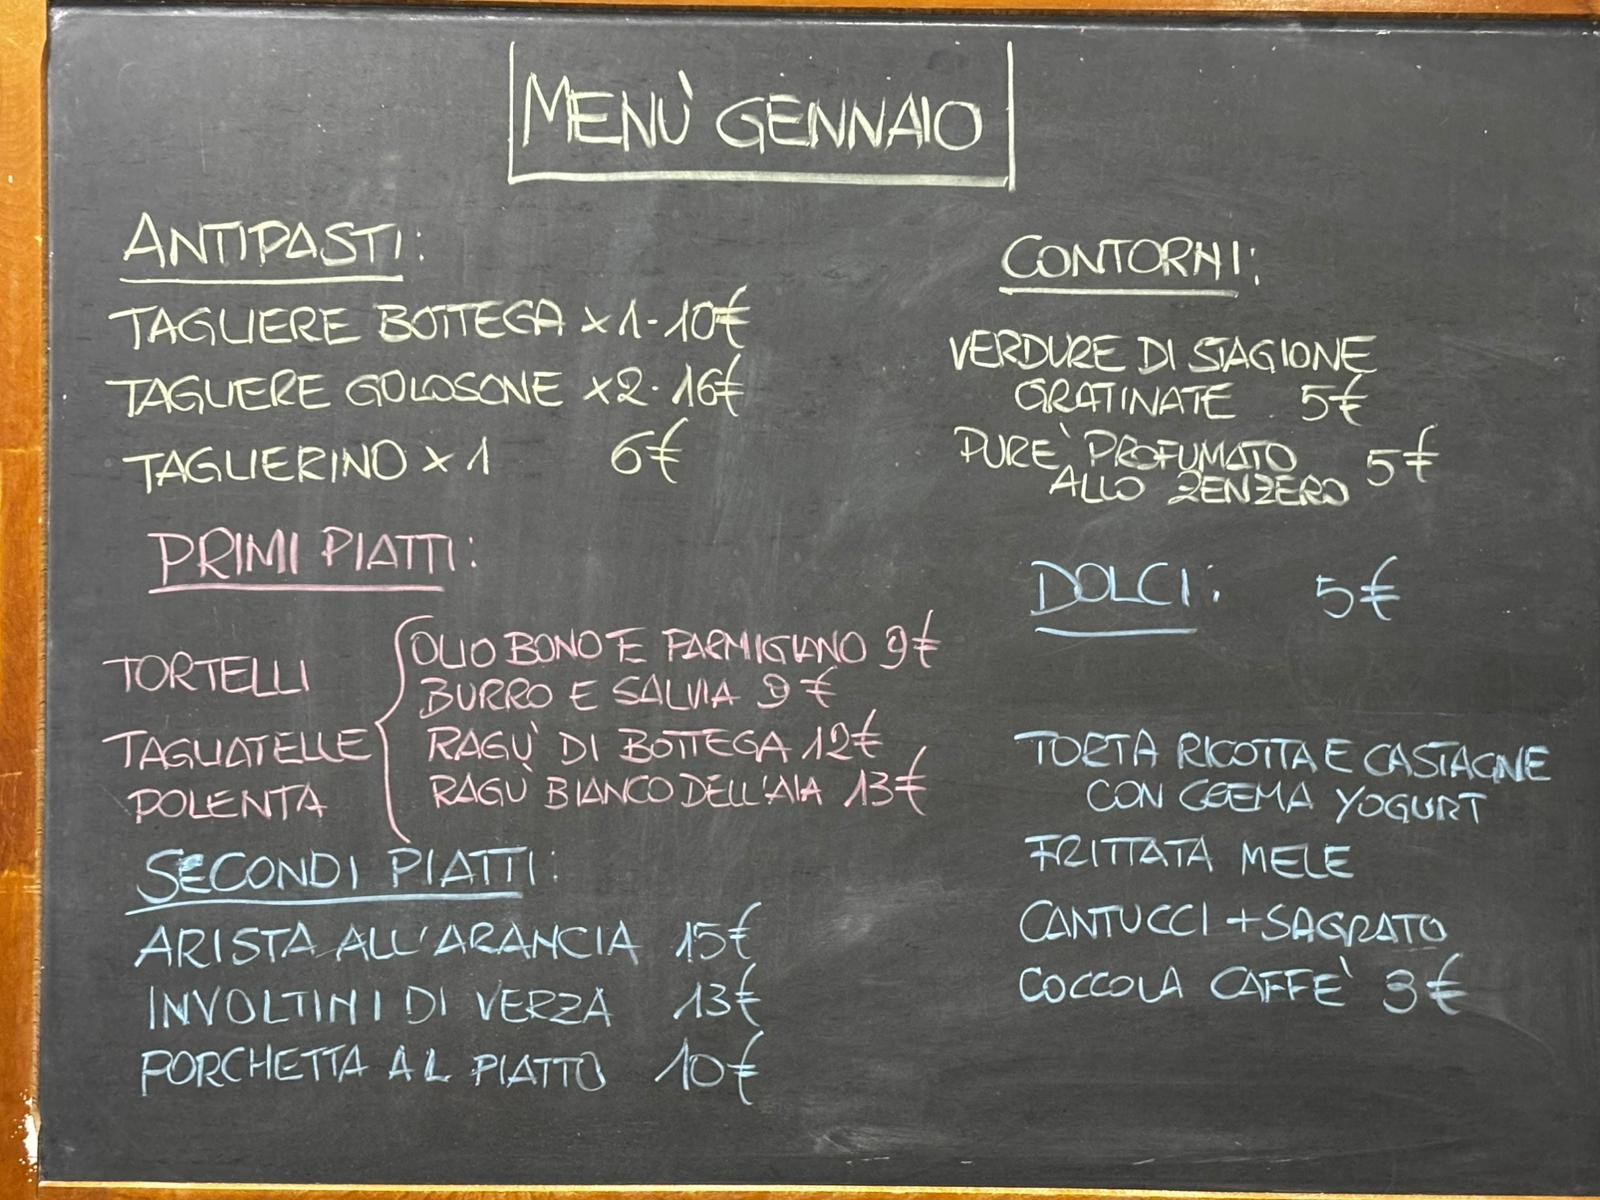 MENÙ GENNAIO
ANTIPASTI:
TAGLIERE BOTTEGA x1-10€
TAGLIERE GOLOSONE x2-16€
TAGLIERINO x1 6€
PRIMI PIATTI:
TORTELLI
TAGLIATELLE
POLENTA
OLIO BONO E PARMIGIANO 9€
BURRO E SALVIA 9€
RAGÙ DI BOTTEGA 12€
RAGÙ BIANCO DELL'AIA 13€
SECONDI PIATTI:
ARISTA ALL'ARANCIA 15€
INVOLTINI DI VERZA 13€
PORCHETTA AL PIATTO 10€
CONTORNI:
VERDURE DI STAGIONE
GRATINATE 5€
PURE` PROFUMATO 5€
ALLO ZENZERO
DOLCI: 5€
TORTA RICOTTA E CASTAGNE
CON CREMA YOGURT
FRITTATA MELE
CANTUCCI + SAGRATO
COCCOLA CAFFE` 3€